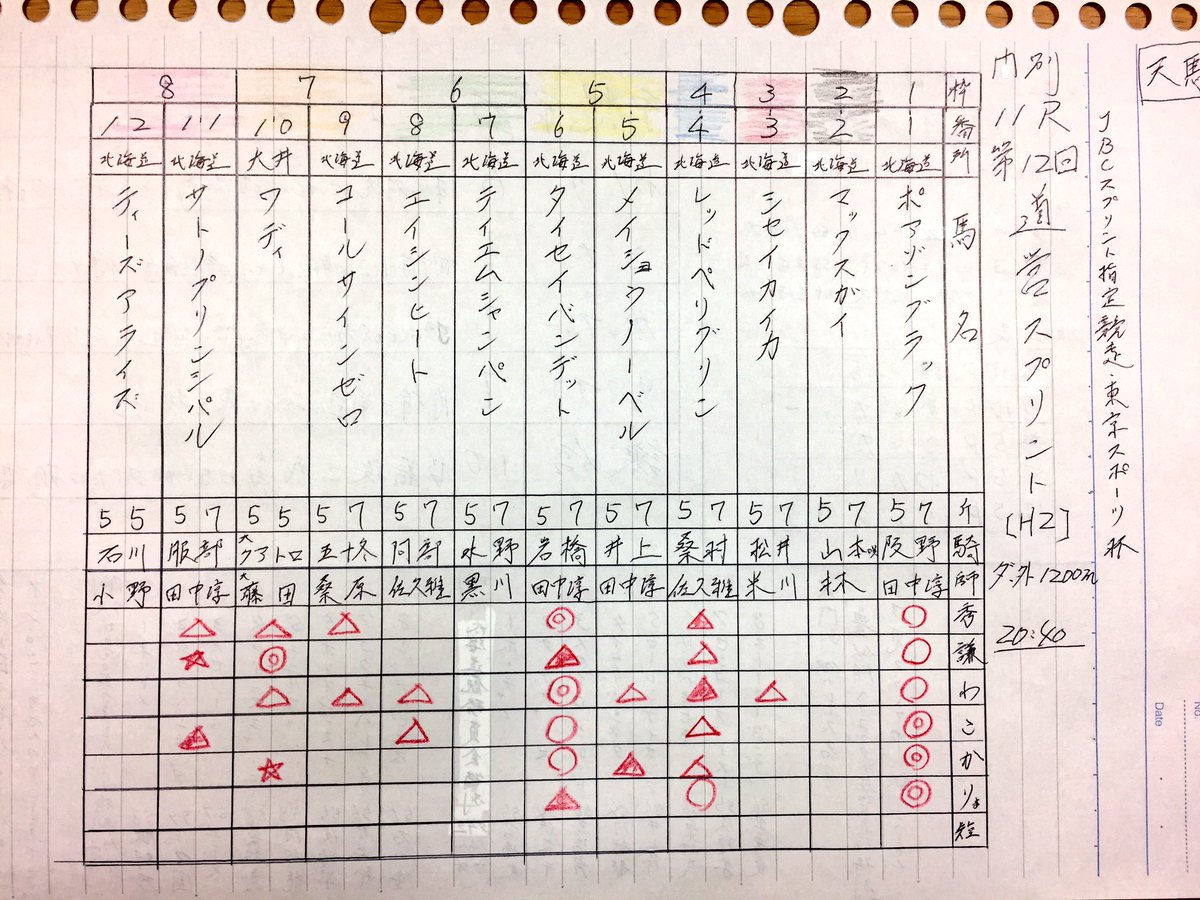 天馬
JBCスプリント指定競走・東京スポーツ杯
門別
11R
第12回
道営スプリント
[H2]
ダ・外1200m
20:40
枠 1 2 3 4 5 6 7 8
番 1 2 3 4 5 6 7 8 9 10 11 12
所 北海道 北海道 北海道 北海道 北海道 北海道 北海道 北海道 北海道 大井 北海道 北海道
馬名
ポアゾンブラック
マックスガイ
シセイカイカ
レッドペリグリン
メイショウノーベル
タイセイバンデット
ティエムシャンパン
エイシンヒート
コールサインゼロ
ワディ
サトノプリンシパル
ティーズアライズ
斤 57 57 57 57 57 57 57 57 57 55 57 55
騎 阪野 山本咲 松井 桑村 井上 岩橋 水野 阿部 五十冬 大クアトロ 服部 石川
師 田中淳 林 米川 佐久雅 田中淳 田中淳 黒川 佐久雅 桑原 大藤田 田中淳 小野
秀 ○ ▲ ◎ △ △ △
謙 ○ △ ▲ ◎ ★
わ ○ △ ▲ △ ◎ △ ▲ △
こ ◎ △ ○ △ ▲
か ◎ △ ▲ ○ ☆
りょ ◎ ○ ▲
短
No.
Date